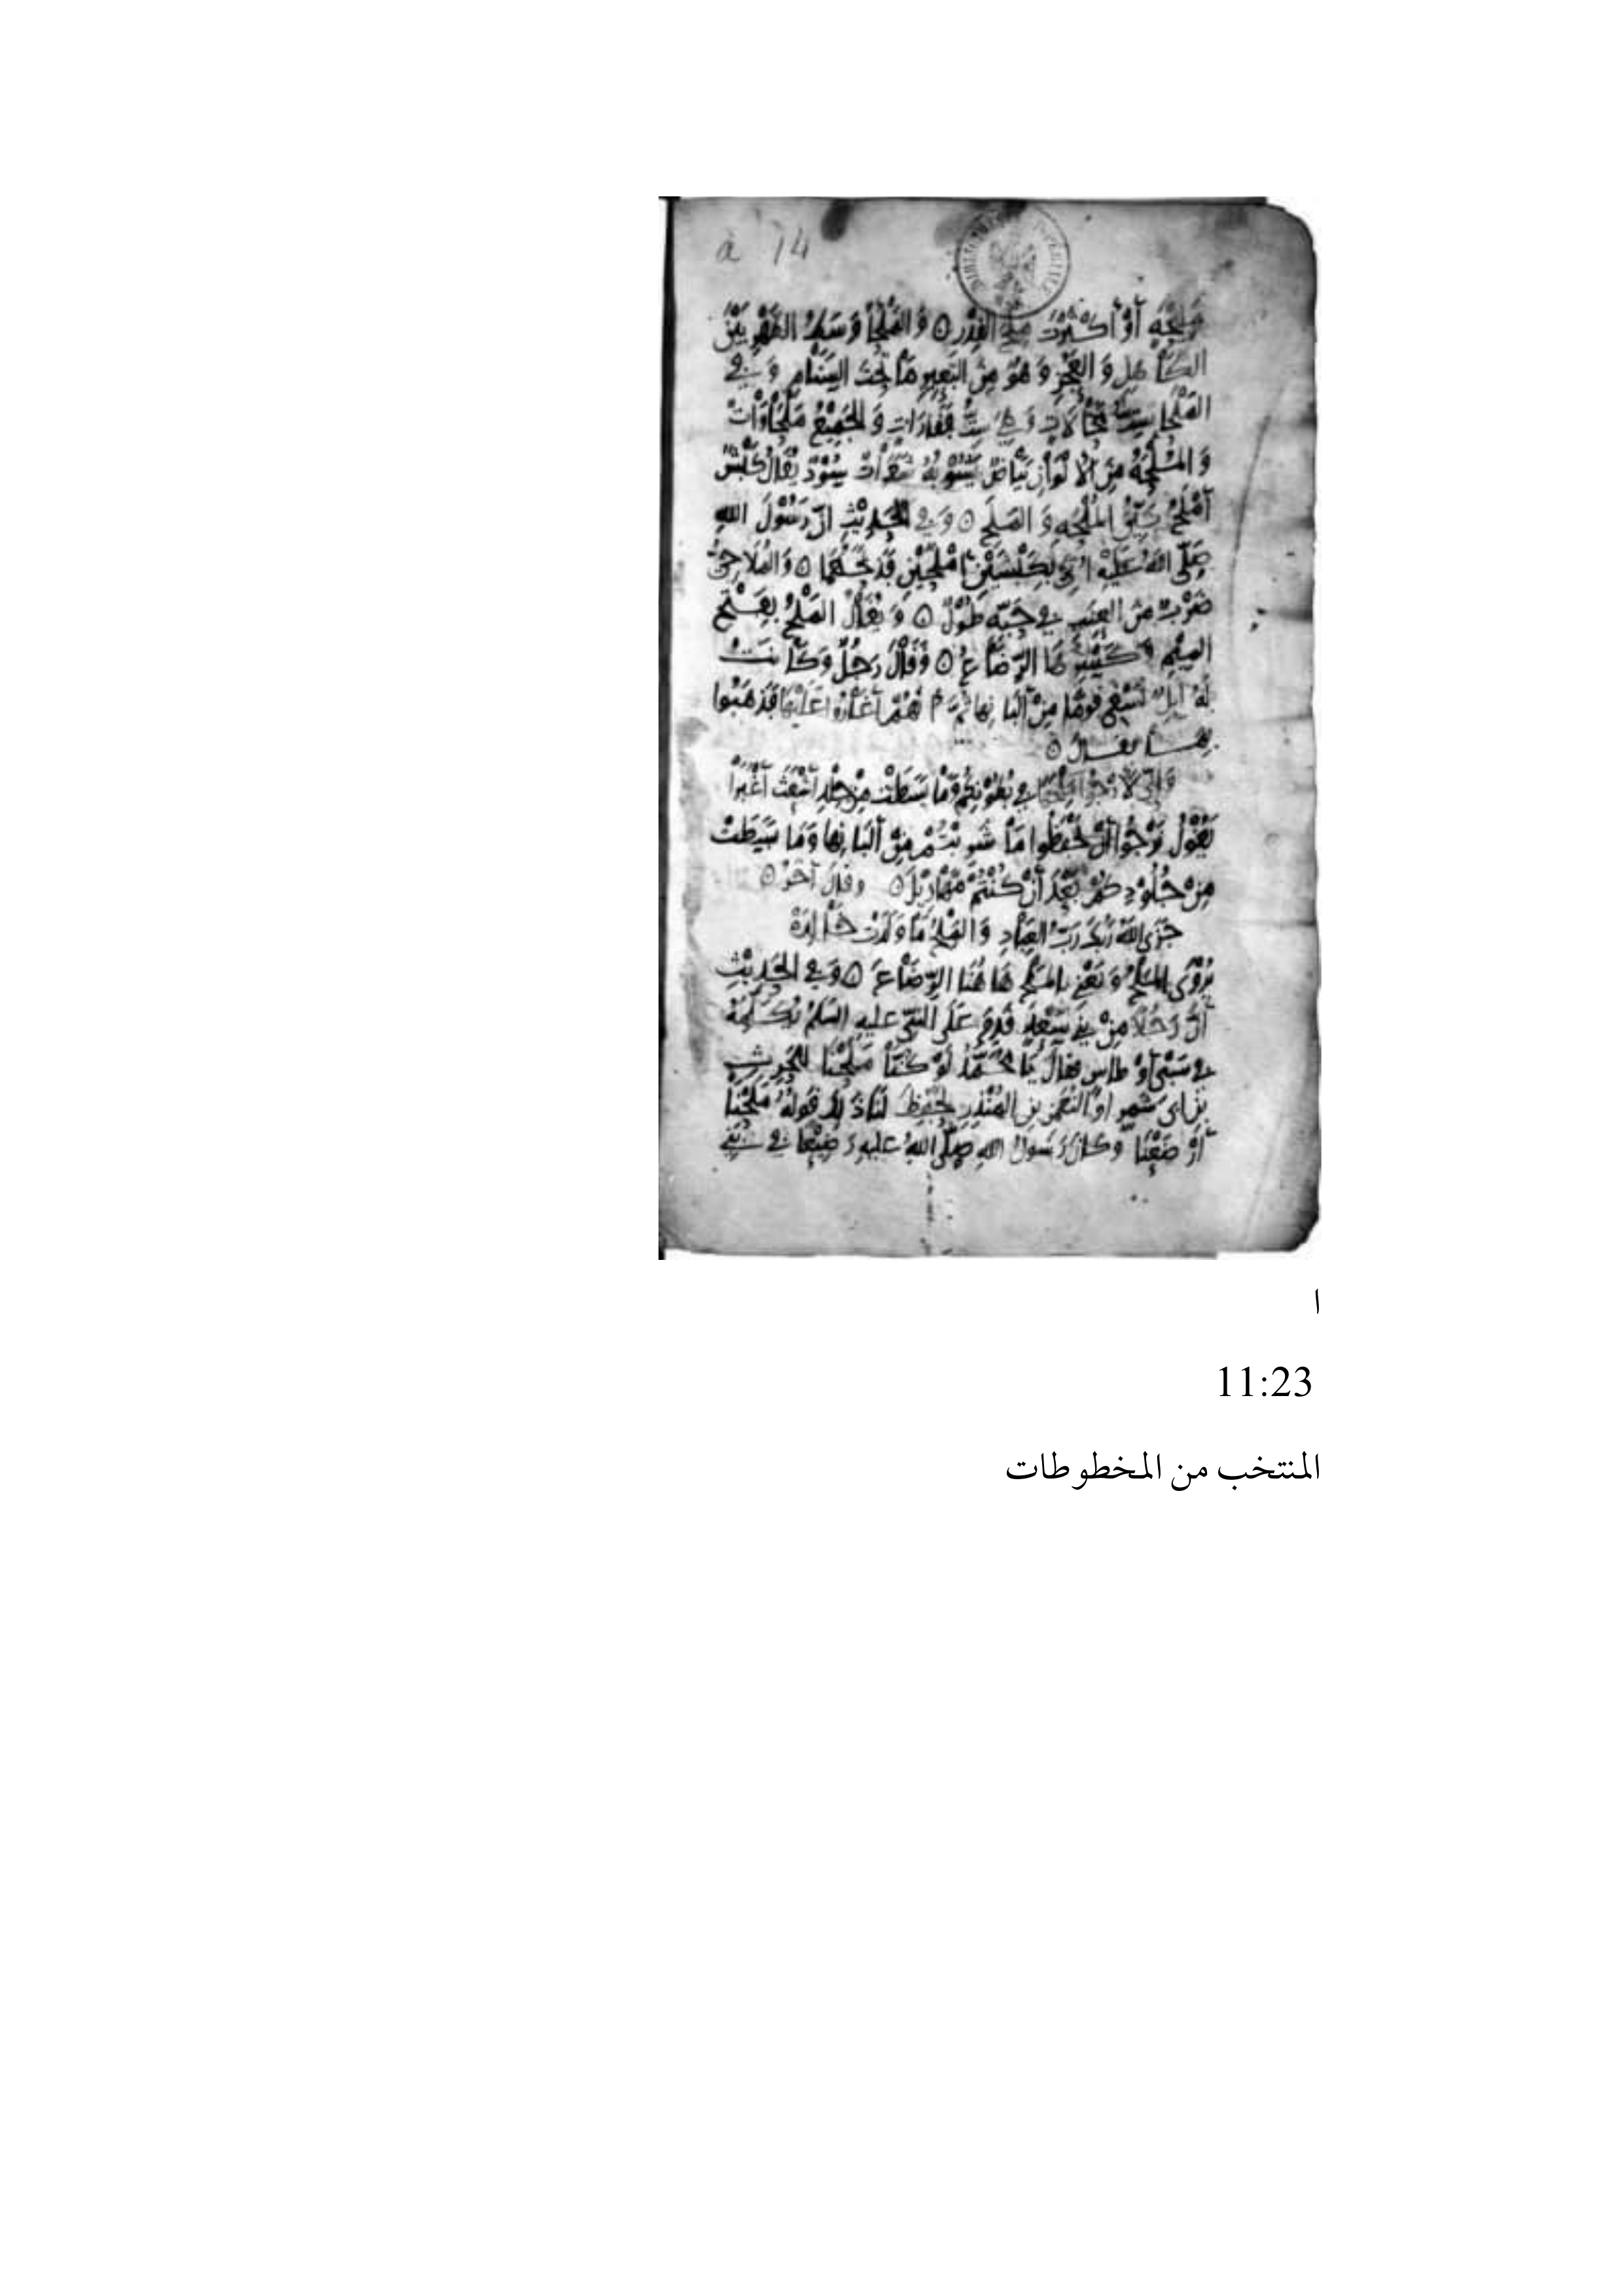 a 14
مَلِيحَةٍ أَوْ أَكْثَرْتَ مِلْحَ القِدْرِ ٥ وَالمَلْحَاءُ وَسَطُ الظَّهْرِ بَيْنَ
الكَاهِلِ وَالعَجُزِ وَهُوَ مِنَ البَعِيرِ مَا تَحْتَ السَّنَامِ وَفِي
المَلْحَاءِ سِتُّ مَحَالَاتٍ وَهِيَ سِتُّ فَقَارَاتٍ وَالجَمِيعُ مَلْحَاوَاتْ
وَالمُلْحَةُ مِنَ الأَلْوَانِ بَيَاضٌ يَشُوبُهُ شَعَرَاتٌ سُوْدٌ يُقَالُ كَبْشٌ
أَمْلَحُ بَيِّنُ المُلْحَةِ وَالمَلَحِ ٥ وَفِي الحَدِيْثِ انَّ رَسُوْلَ اللهِ
صَلَّى اللهُ عَلَيْهِ اُتِيَ بِكَبْشَيْنِ امْلَحَيْنِ فَذَبَحَهُمَا ٥ وَالمُلَاحِيُّ
ضَرْبٌ مِنَ العِنَبِ فِي حَبِّهِ طُوْلٌ ٥ وَيُقَالُ المَلْحُ بِفَتْحِ
المِيْمِ وَكَسْرِهَا الرِّضَاعُ ٥ وَقَالَ رَجُلٌ وَكَانَتْ
لَهُ ابِلٌ فَسَقَى قَوْمًا مِنْ أَلبَانِهَا ثُمَّ انَّهُمْ أَغَارُوا عَلَيْهَا فَذَهَبُوا
بِهَا فقال ٥
وَإِنِّي لَأَرْجُوا مِلْحَهَا فِي بُطُوْنِكُمْ وَمَا بَسَطَتْ مِنْ جِلْدِ أَشْعَثَ أَغْبَرَا
يَقُوْلُ نَرْجُوا أَنْ تَحْفَظُوا مَا شَرِبْتُمْ مِنْ أَلبَانِهَا وَمَا بَسَطَتْ
مِنْ جُلُوْدِكُمْ بَعْدَ أَنْ كُنْتُمْ مَهَازِيْلَ ٥ وقال آخر ٥
جَزَى اللهُ رَبُّكَ رَبُّ العِبَادِ وَالمِلْحُ مَا وَلَدَتْ خَالِدَهْ
يُرْوَى المِلْحُ وَيَعْنِي بِالمِلْحِ هَاهُنَا الرِّضَاعَ ٥ وَفِي الحَدِيْثِ
أَنَّ رَجُلًا مِنْ بَنِي سَعْدٍ قَدِمَ عَلَى النَّبِيِّ عليه السَّلمُ يُكَلِّمُهُ
فِي سَبْيِ أَوْطَاسٍ فقال يَا مُحَمَّدُ لَوْ كُنَّا مَلَحْنَا لِلحَرِثِ
بْنِ ابِي شَمِرٍ او النُّعْمٰنِ بنِ المُنْذِرِ لَحَفِظَ لَنَا ذَلِكَ قَوْلُهُ مَلَحْنَا
أَرْضَعْنَا وَكَانَ رَسُوْلُ اللهِ صَلَّى اللهُ عليهِ رَضِيْعًا فِي بَنِي
ا
11:23
المنتخب من المخطوطات